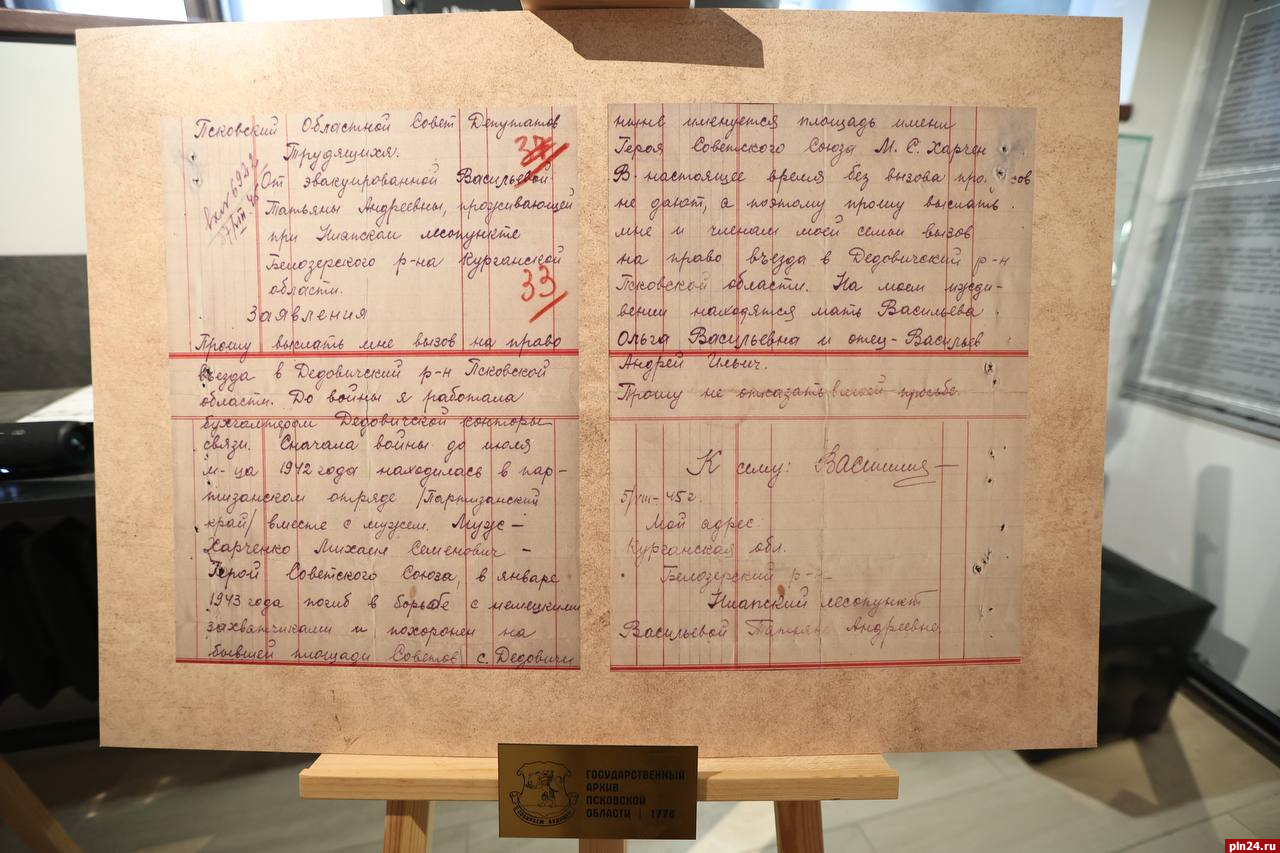 Псковский Областной Совет Депутатов
Трудящихся.
37
вх № 692
От эвакуированной Васильевой
Татьяны Андреевны, проживающей
при Ниапском лесопункте
Белозерского р-на Курганской
области.
33
Заявления
Прошу выслать мне вызов на право
въезда в Дедовичский р-н Псковской
области. До войны я работала
бухгалтером Дедовичской конторы
связи. Сначала войны до июля
м-ца 1942 года находилась в пар-
тизанском отряде /Партизанский
край/ вместе с мужем. Муж -
Харченко Михаил Семенович -
Герой Советского Союза, в январе
1943 года погиб в борьбе с немецкими
захватчиками и похоронен на
бывшей площади Советов с. Дедовичи
ныне именуется площадь имени
Героя Советского Союза М. С. Харчен
В настоящее время без вызова про сов
не дают, а поэтому прошу выслать
мне и членам моей семьи вызов
на право въезда в Дедовичский р-н
Псковской области. На моем ижди-
вении находятся мать Васильева
Ольга Васильевна и отец - Васильев
Андрей Ильич.
Прошу не отказать в моей просьбе.
К сему:
5/VIII-45 г.
Мой адрес:
Курганская обл.
Белозерский р-н
Ниапский лесопункт
Васильевой Татьяне Андреевне.
ГОСУДАРСТВЕННЫЙ
АРХИВ
ПСКОВСКОЙ
ОБЛАСТИ | 1776
СОБИРАЕМ БУДУЩЕЕ
pln24.ru